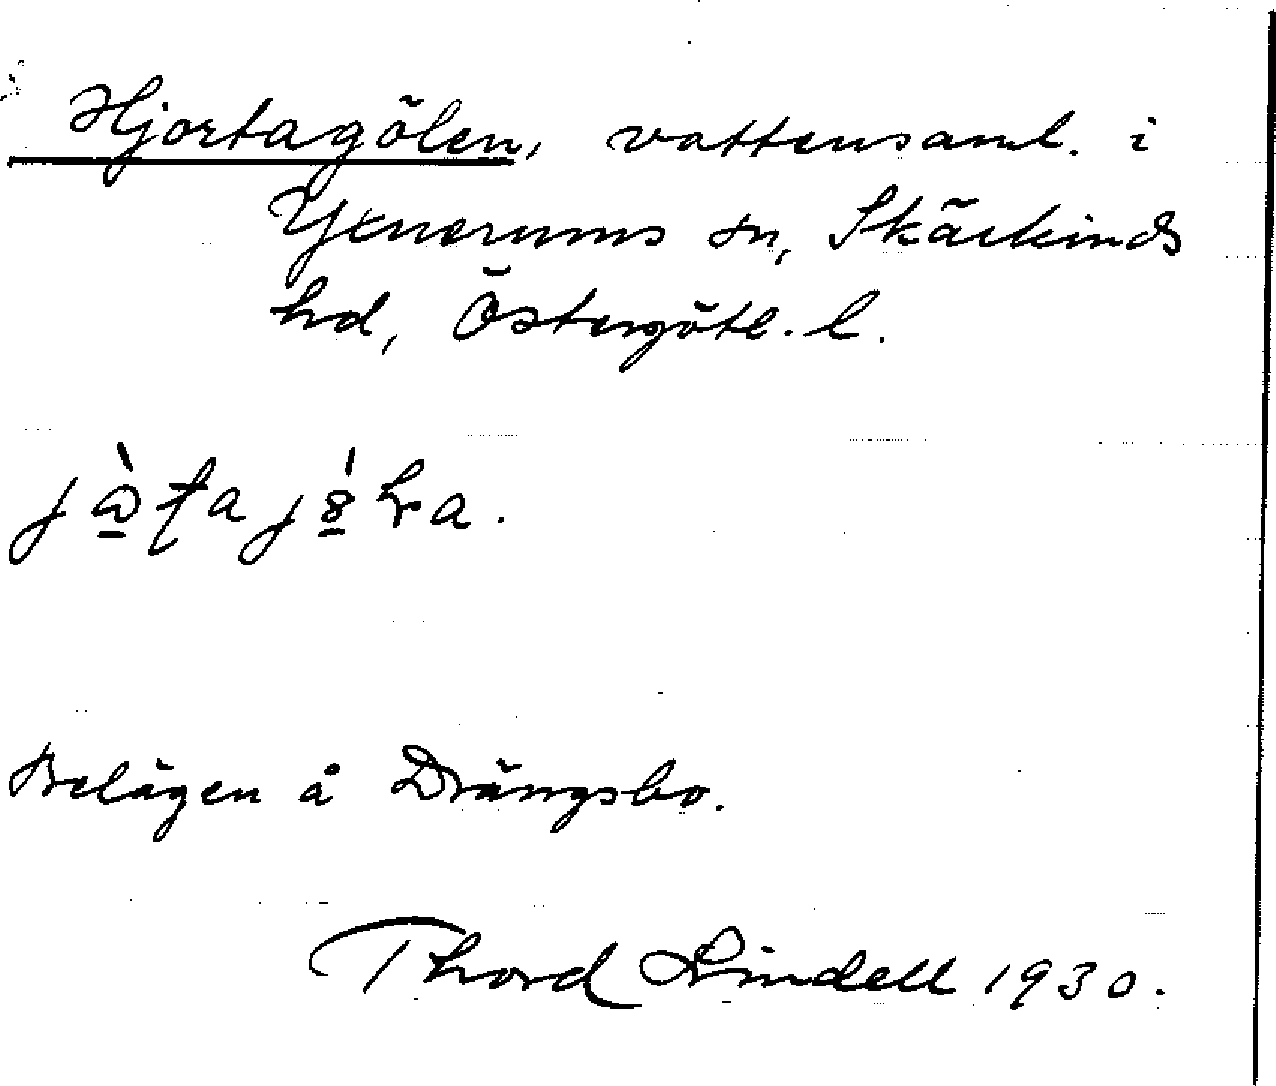 Hjortagölen, vattensaml. i
Yxnerums sn, Skärkinds
hd, Östergötl. l.
Belägen å Drängsbo.
Thord Lindell 1930.